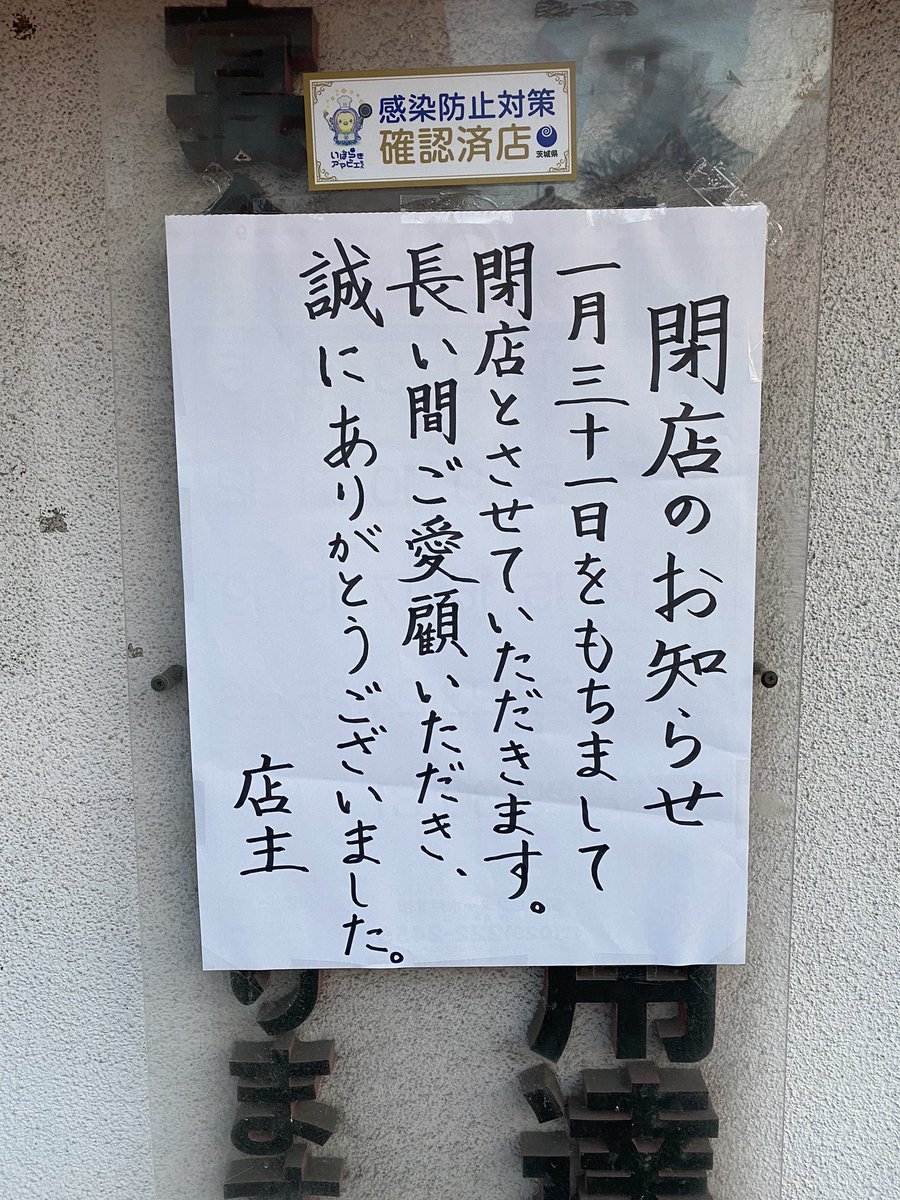 感染防止対策
確認済店
いばらき
アマビエちゃん
茨城県
閉店のお知らせ
一月三十一日をもちまして
閉店とさせていただきます。
長い間ご愛顧いただき、
誠にありがとうございました。
店主